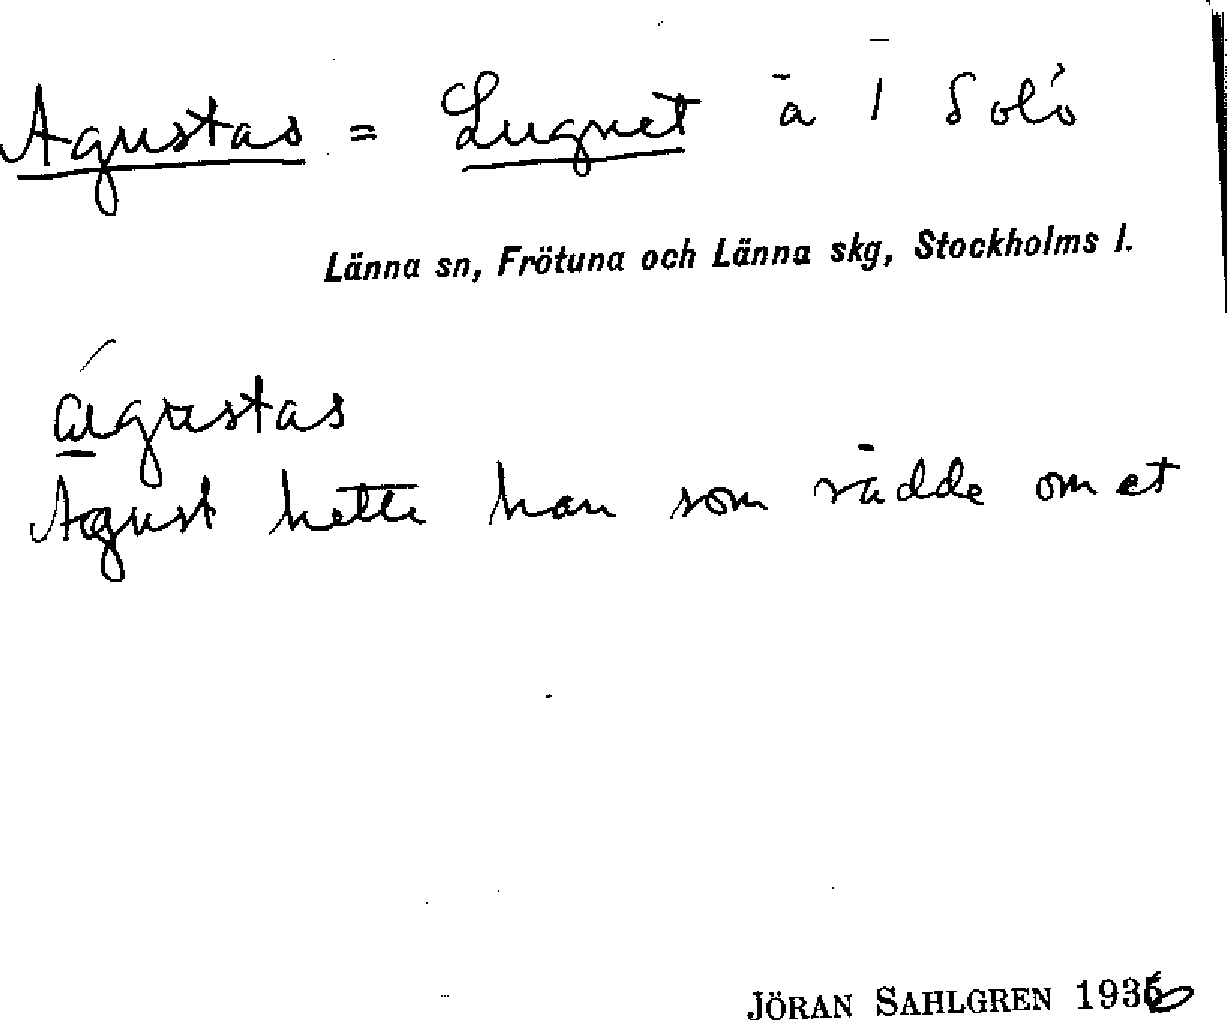 Agustas = Lugnet ä 1 Solö
Länna sn, Frötuna och Länna skg, Stockholms l.
águstas
Agust hette han som rådde om et
JÖRAN SAHLGREN 1936